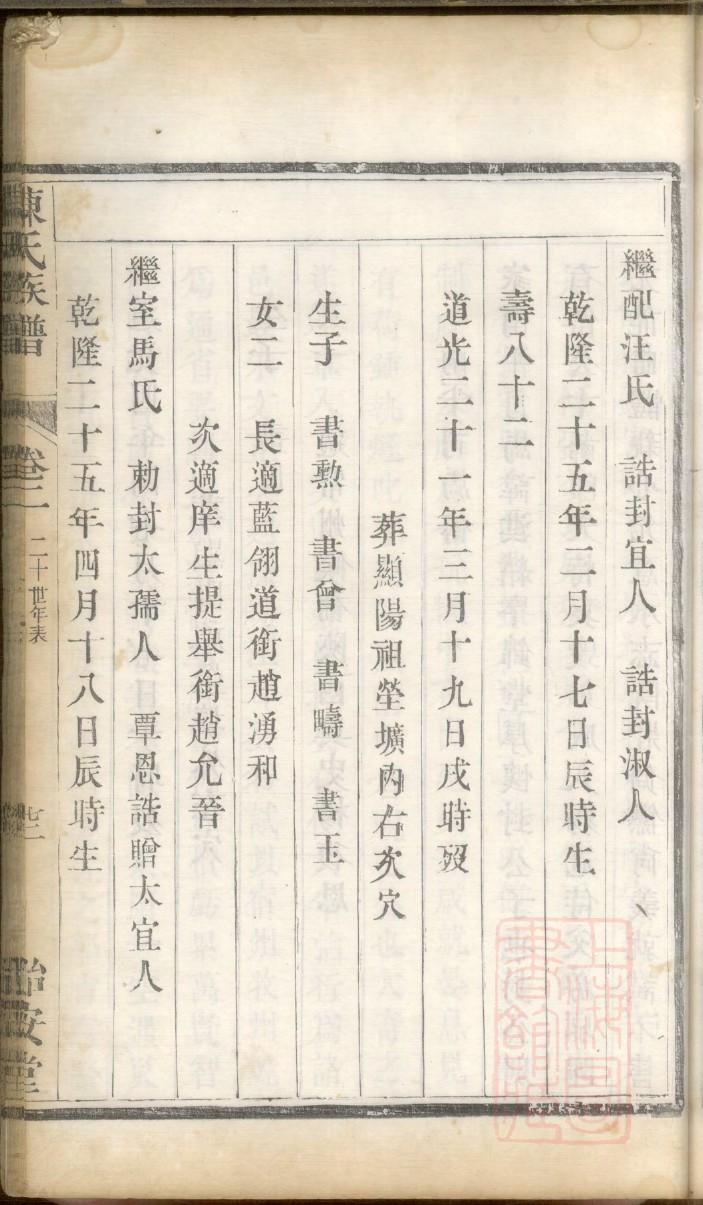 繼配汪氏　誥封宜人　誥封淑人
乾隆二十五年二月十七日辰時生
壽八十二
道光二十一年三月十九日戌時歿
葬顯陽祖塋壙內右次穴
生子　書勳　書曾　書疇　書玉
女二　長適藍翎道銜趙湧和
次適庠生提舉銜趙允晉
繼室馬氏　勅封太孺人　覃恩誥贈太宜人
乾隆二十五年四月十八日辰時生
陳氏族譜
卷二
二十世年表
怡安堂